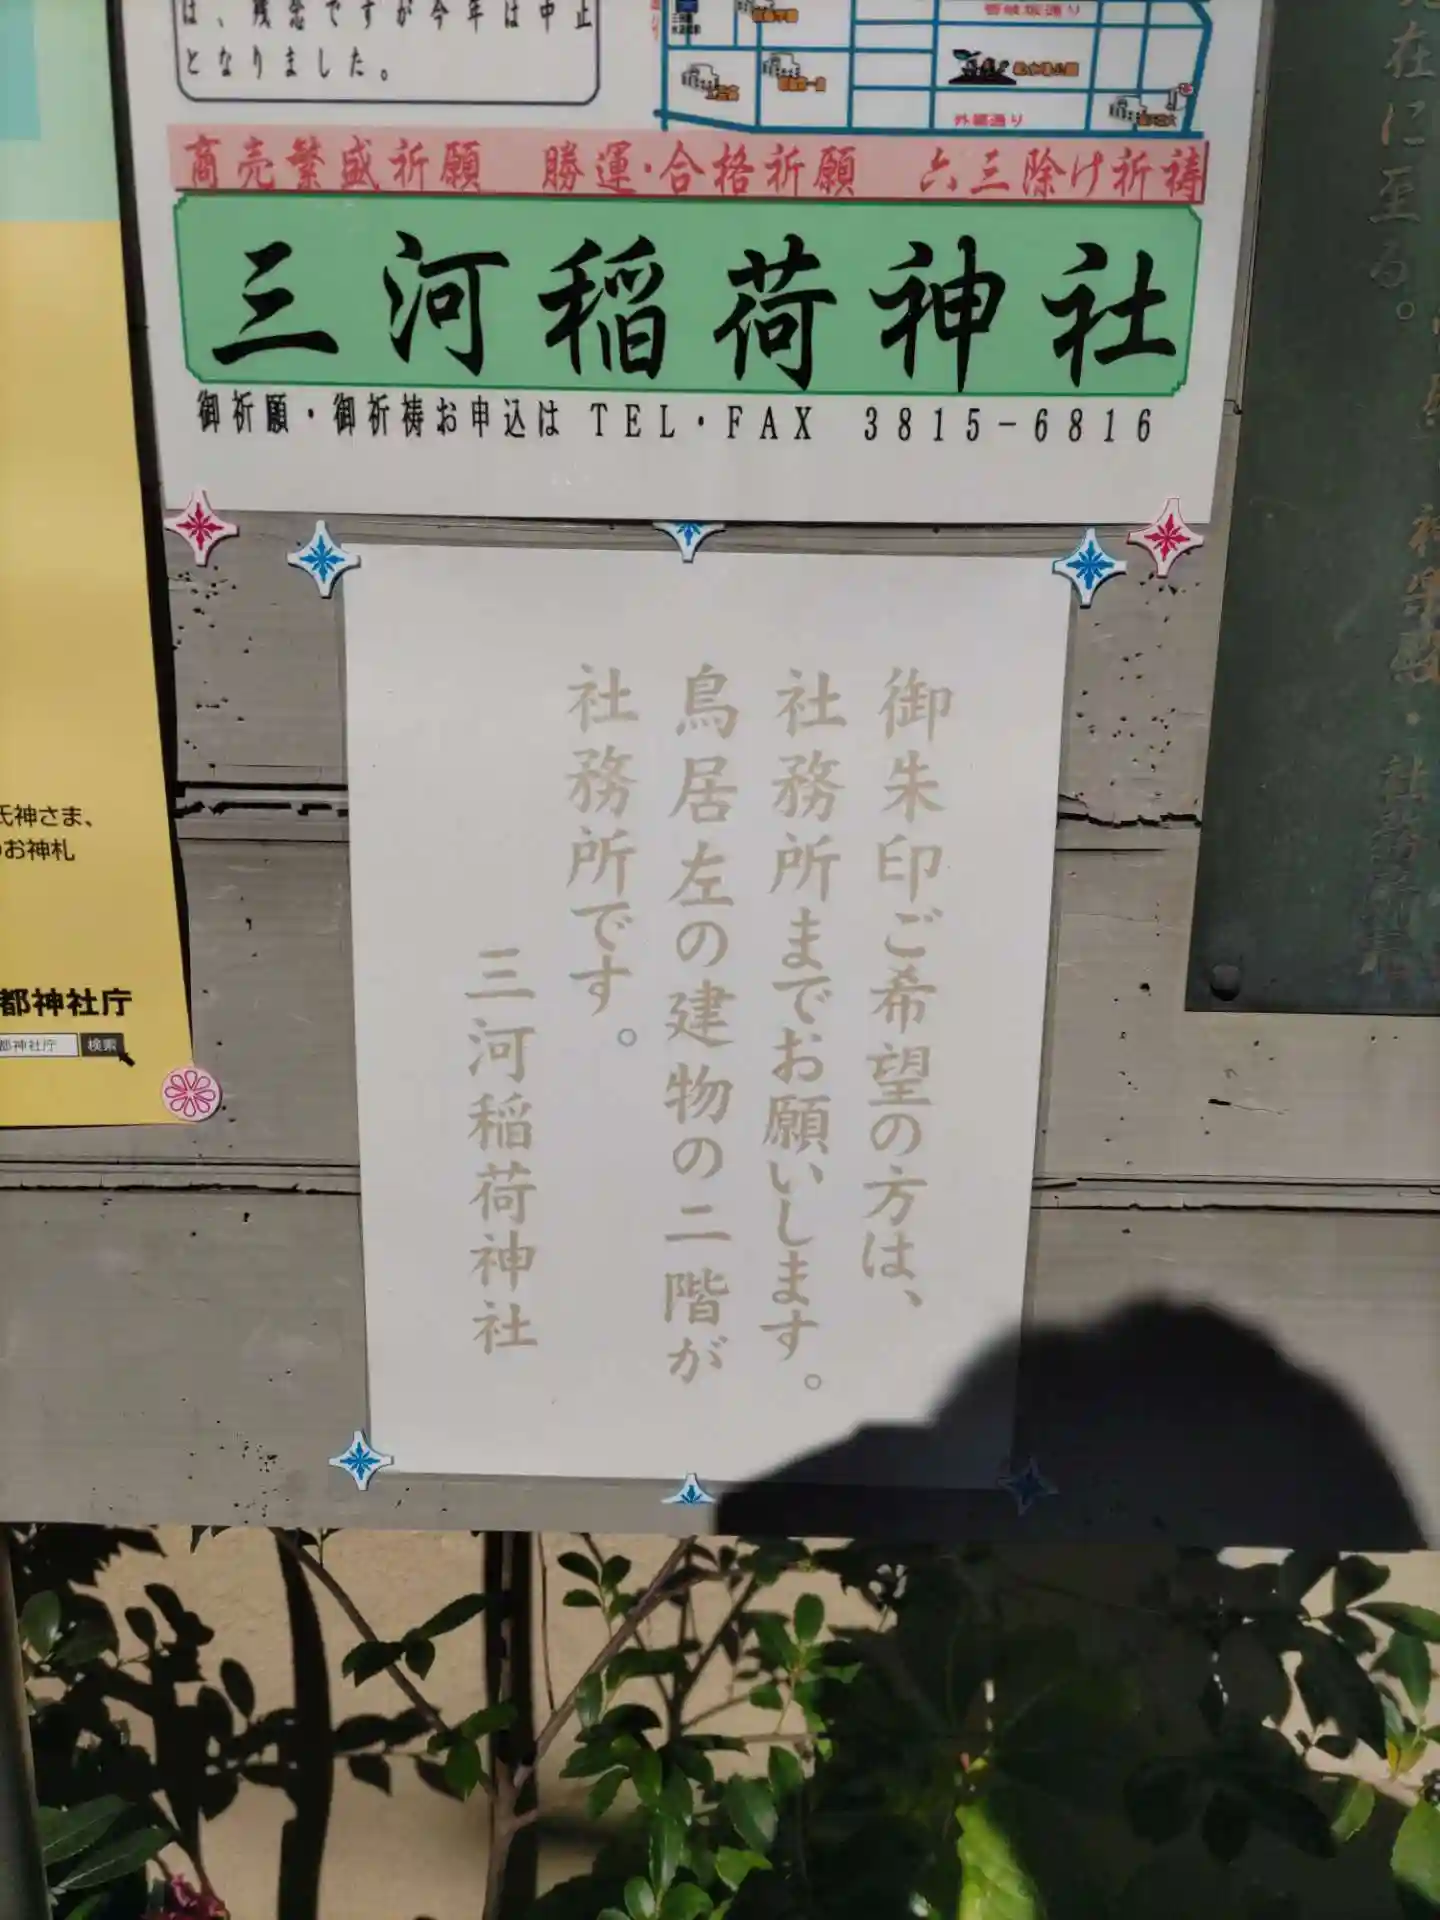 は、残念ですが今年は中止
となりました。
壱岐坂通り
外堀通り
商売繁盛祈願　勝運・合格祈願　六三除け祈祷
三河稲荷神社
御祈願・御祈祷お申込は TEL・FAX 3815-6816
御朱印ご希望の方は、
社務所までお願いします。
鳥居左の建物の二階が
社務所です。
三河稲荷神社
氏神さま、
お神札
都神社庁
都神社庁 検索
在に至る。